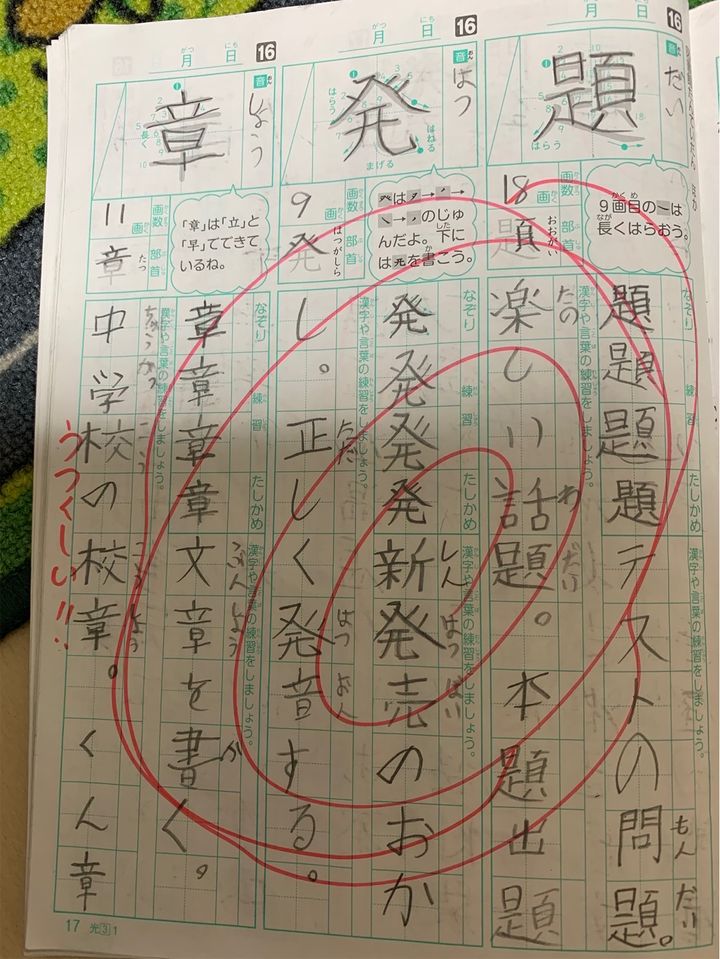 16
月 日
がつ にち
題
音 だい
9画目の一は
長くはらおう。
18画
画数
部首
おおがい
なぞり 練習 たしかめ
題題題題テストの問題。
もんだい
漢字や言葉の練習をしましょう。
楽しい話題。本題出題
たの わだい
16
月 日
がつ にち
発
音 はつ
はらう
はねる
まげる
のじゅ
んだよ。下に
は癶を書こう。
9画
画数
部首
はつがしら
なぞり 練習 たしかめ
発発発発新発売のおか
しんはつばい
漢字や言葉の練習をしましょう。
し。正しく発音する。
ただ はつおん
16
月 日
がつ にち
章
音 しょう
長く
「章」は「立」と
「早」でできて
いるね。
11画
画数
部首
章 たつ
なぞり 練習 たしかめ
章章章章文章を書く。
ぶんしょう か
漢字や言葉の練習をしましょう。
中学校の校章。くん章
ちゅうがっこう こうしょう
うつくしい!!
17 光3 1